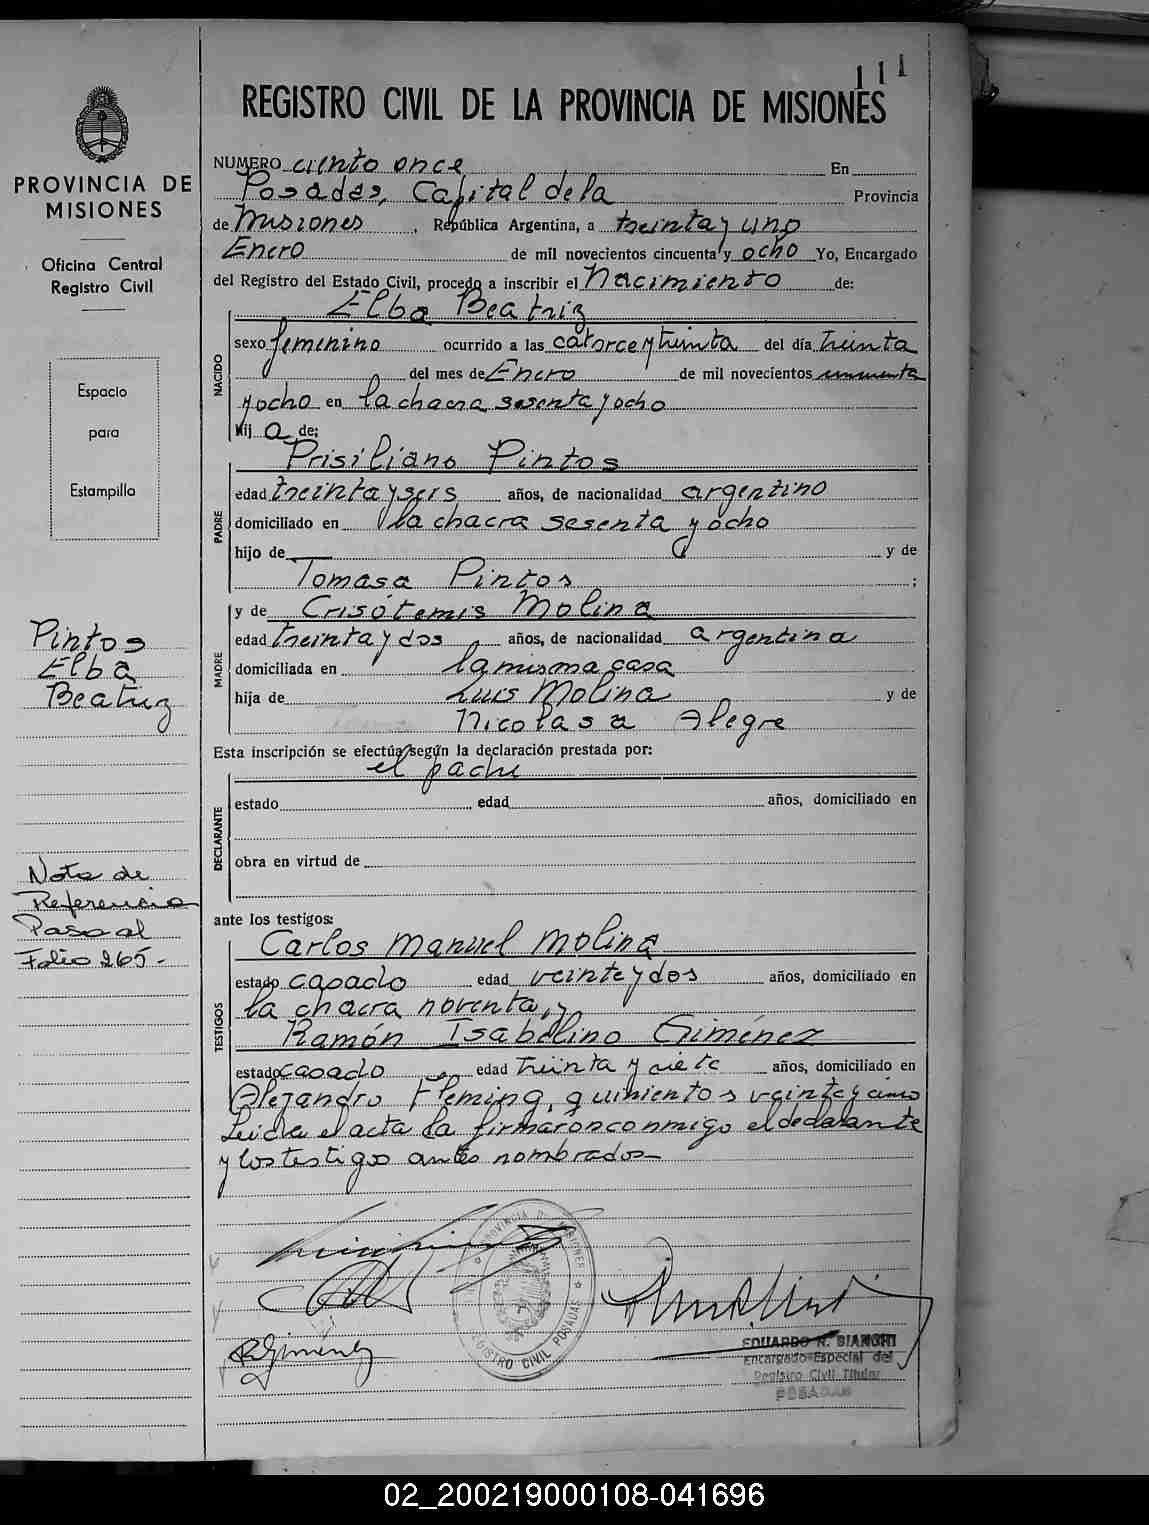 111
REGISTRO CIVIL DE LA PROVINCIA DE MISIONES
PROVINCIA DE
MISIONES
Oficina Central
Registro Civil
Espacio
para
Estampilla
Pintos
Elba
Beatriz
Nota de
Referencia
Paso al
Folio 265.-
NUMERO ciento once En
Posadas, Capital de la Provincia
de Misiones, República Argentina, a treinta y uno
Enero de mil novecientos cincuenta y ocho Yo, Encargado
del Registro del Estado Civil, procedo a inscribir el Nacimiento de:
Elba Beatriz
NACIDO
sexo femenino ocurrido a las catorce y treinta del día treinta
del mes de Enero de mil novecientos cincuenta
y ocho en la chacra sesenta y ocho
Hij a de:
Prisiliano Pintos
PADRE
edad treinta y seis años, de nacionalidad argentino
domiciliado en la chacra sesenta y ocho
hijo de — y de
Tomasa Pintos ;
MADRE
y de Crisótemis Molina
edad treinta y dos años, de nacionalidad argentina
domiciliada en la misma casa
hija de Luis Molina y de
Nicolasa Alegre
Esta inscripción se efectúa según la declaración prestada por:
el padre
DECLARANTE
estado edad años, domiciliado en
obra en virtud de
ante los testigos:
TESTIGOS
Carlos Manuel Molina
estado casado edad veinte y dos años, domiciliado en
la chacra noventa, y
Ramón Isabelino Giménez
estado casado edad treinta y siete años, domiciliado en
Alejandro Fleming, quinientos veinte y cinco
Leida el acta la firmaron conmigo el declarante
y los testigos antes nombrados—
PROVINCIA DE MISIONES
REGISTRO CIVIL POSADAS
RGiménez
EDUARDO R. BIANCHI
Encargado Especial del
Registro Civil Titular
POSADAS
02_200219000108-041696